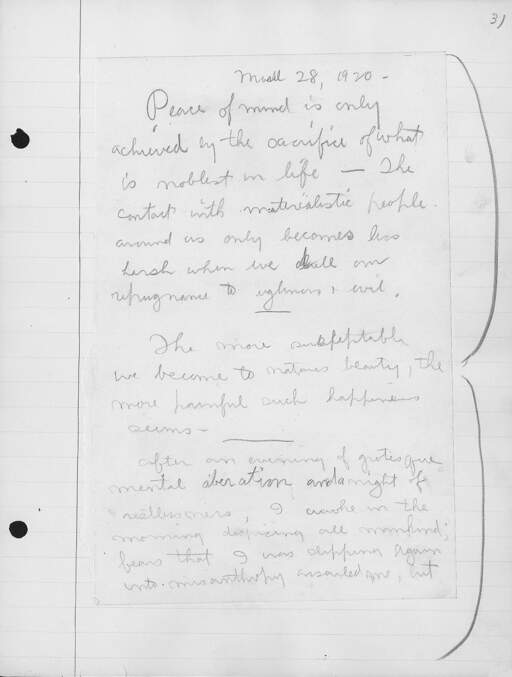 31
28, 1920 -
Peace of mind is only
achieved by the sacrifice of what
is noblest in life — The
contact with materialistic people
around us only becomes less
harsh when we dull our
repugnance to ugliness & evil.
The more suskeptable
we become to natures beauty, the
more painful such happiness
seems -
After an evening of grotesque
mental aberation and a night of
restlessness, I awoke in the
morning despising all mankind;
fears that I was slipping again
into misanthropy assailed me, but